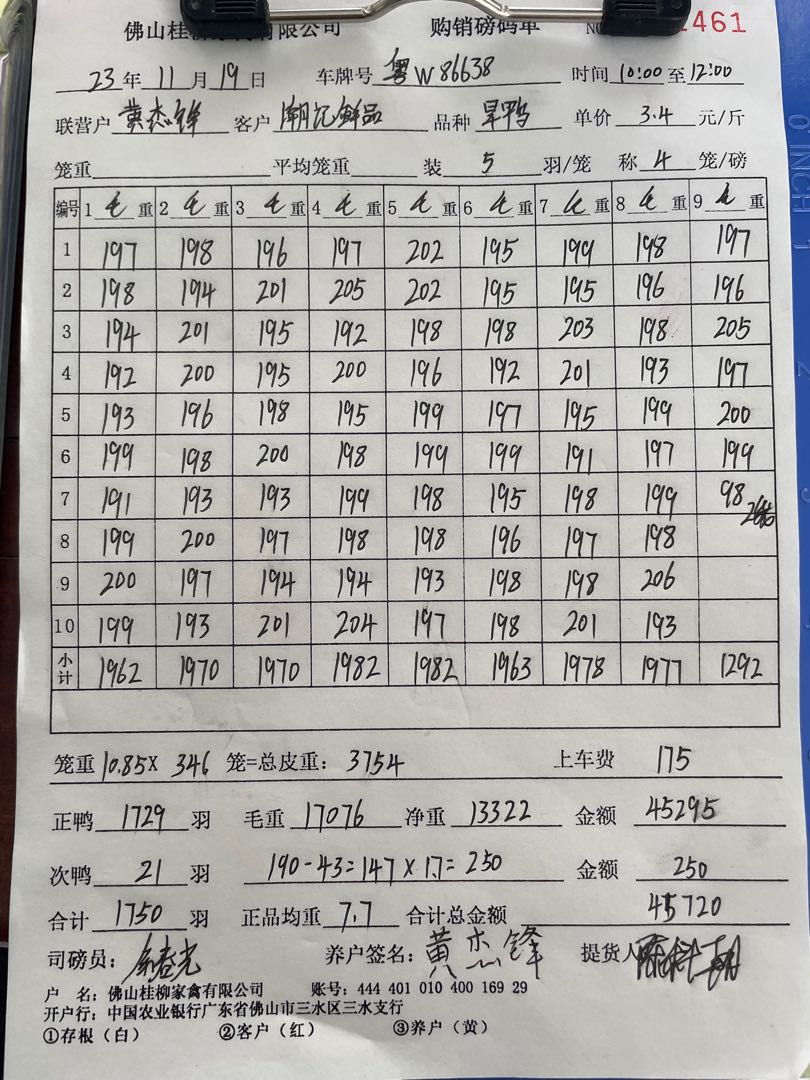 佛山桂柳 有限公司 购销磅码单 NO 461
23年11月19日 车牌号 粤W86638 时间10:00至12:00
联营户 黄杰锋 客户 潮记鲜品 品种 旱鸭 单价 3.4 元/斤
笼重 平均笼重 装 5 羽/笼 称 4 笼/磅
编号 1 毛 重 2 毛 重 3 毛 重 4 毛 重 5 毛 重 6 毛 重 7 毛 重 8 毛 重 9 毛 重
1 197 198 196 197 202 195 199 198 197
2 198 194 201 205 202 195 195 196 196
3 194 201 195 192 198 198 203 198 205
4 192 200 195 200 196 192 201 193 197
5 193 196 198 195 199 197 195 199 200
6 199 198 200 198 199 199 191 197 199
7 191 193 193 199 198 195 198 199 98
8 199 200 197 198 198 196 197 198
9 200 197 194 194 193 198 198 206
10 199 193 201 204 197 198 201 193
小计 1962 1970 1970 1982 1982 1963 1978 1977 1292
笼重 10.85× 346 笼=总皮重: 3754 上车费 175
正鸭 1729 羽 毛重 17076 净重 13322 金额 45295
次鸭 21 羽 190-43=147×1.7=250 金额 250
合计 1750 羽 正品均重 7.7 合计总金额 45720
司磅员: 养户签名: 黄杰锋 提货人
户 名: 佛山桂柳家禽有限公司 账号: 444 401 010 400 169 29
开户行: 中国农业银行广东省佛山市三水区三水支行
①存根(白) ②客户(红) ③养户(黄)